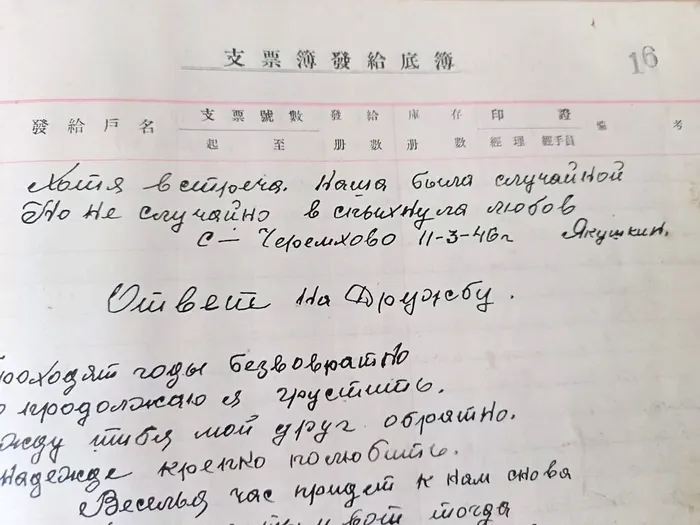 支票簿發給底簿
16
發給戶名 支票號數 起 至 發給 册數 庫存 册數 印證 經理 經手員 備考
Хотя встреча. Наша была случайной
Но не случайно в спыхнула любов
С — Черемхово 11-3-46г Якушкин.
Ответ на Дружбу.
роходят годы безвовратно
о продолжаю я грустить.
жду тибя мой друг обратно.
надежде крепко полюбить.
Веселыя час придет к нам снова
вот тогда